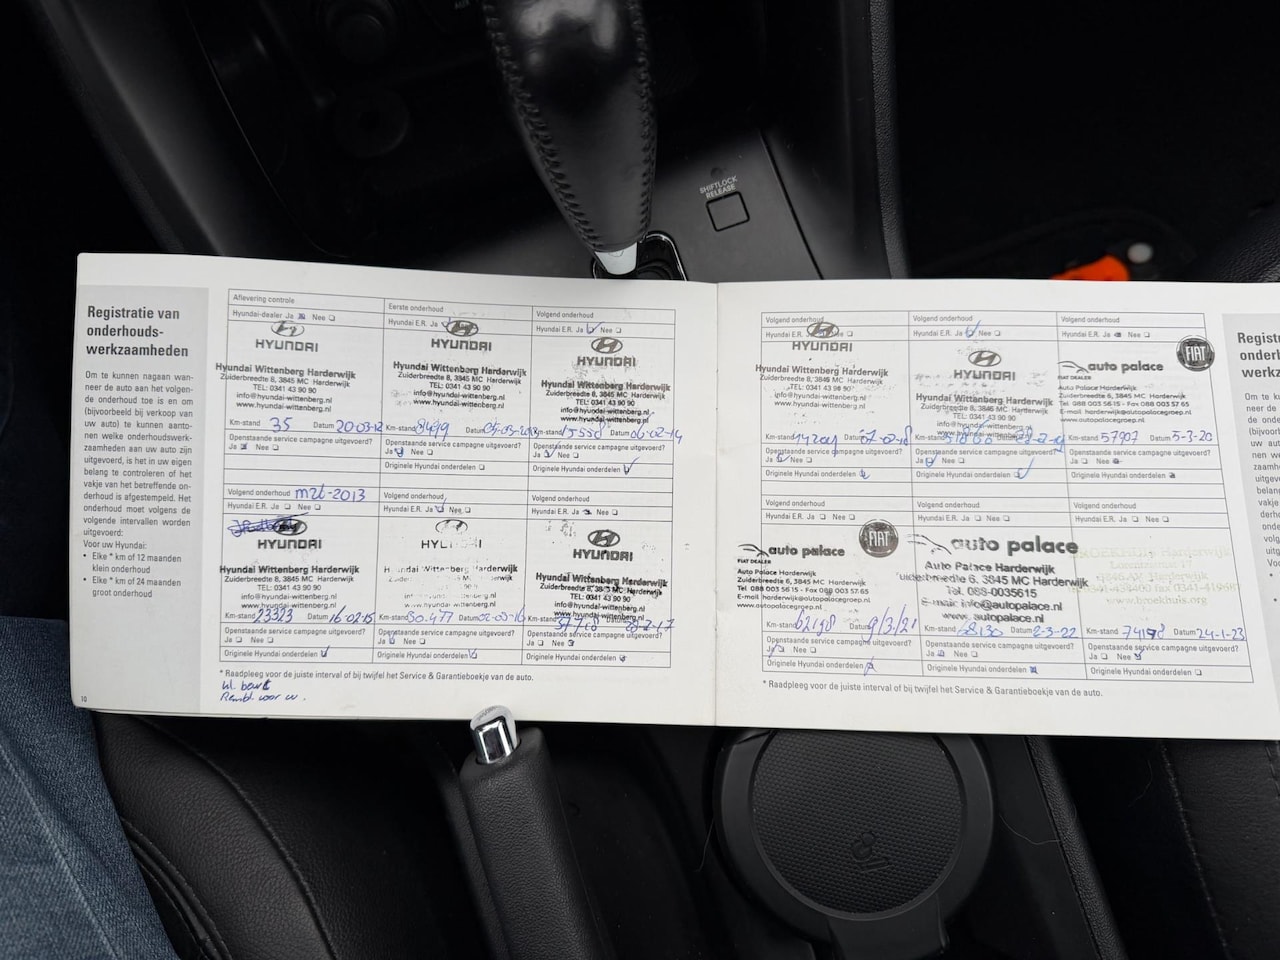 SHIFTLOCK
RELEASE
Registratie van
onderhouds-
werkzaamheden
Om te kunnen nagaan wan-
neer de auto aan het volgen-
de onderhoud toe is en om
(bijvoorbeeld bij verkoop van
uw auto) te kunnen aanto-
nen welke onderhoudswerk-
zaamheden aan uw auto zijn
uitgevoerd, is het in uw eigen
belang te controleren of het
vakje van het betreffende on-
derhoud is afgestempeld. Het
onderhoud moet volgens de
volgende intervallen worden
uitgevoerd:
Voor uw Hyundai:
• Elke * km of 12 maanden
klein onderhoud
• Elke * km of 24 maanden
groot onderhoud
10
Aflevering controle
Hyundai-dealer Ja Nee
HYUNDAI
Hyundai Wittenberg Harderwijk
Zuiderbreedte 8, 3845 MC Harderwijk
TEL: 0341 43 90 90
info@hyundai-wittenberg.nl
www.hyundai-wittenberg.nl
Km-stand 35 Datum 20-03-12
Openstaande service campagne uitgevoerd?
Ja Nee
Eerste onderhoud
Hyundai E.R. Ja
HYUNDAI
Hyundai Wittenberg Harderwijk
Zuiderbreedte 8, 3845 MC Harderwijk
TEL: 0341 43 90 90
info@hyundai-wittenberg.nl
www.hyundai-wittenberg.nl
Km-stand Datum
Openstaande service campagne uitgevoerd?
Ja Nee
Originele Hyundai onderdelen
Volgend onderhoud
Hyundai E.R. Ja Nee
HYUNDAI
Hyundai Wittenberg Harderwijk
Zuiderbreedte 8, 3845 MC Harderwijk
TEL: 0341 43 90 90
info@hyundai-wittenberg.nl
www.hyundai-wittenberg.nl
15558 Datum 06-02-14
Openstaande service campagne uitgevoerd?
Ja Nee
Originele Hyundai onderdelen
Volgend onderhoud
Hyundai E.R. Ja Nee
HYUNDAI
Hyundai Wittenberg Harderwijk
Zuiderbreedte 8, 3845 MC Harderwijk
TEL: 0341 43 90 90
info@hyundai-wittenberg.nl
www.hyundai-wittenberg.nl
Km-stand 23323 Datum 16-02-15
Openstaande service campagne uitgevoerd?
Ja Nee
Originele Hyundai onderdelen
Volgend onderhoud
Hyundai E.R. Ja Nee
Hyundai Wittenberg Harderwijk
Zuiderbreedte 8, 3845 MC Harderwijk
Km-stand 30.477 Datum
Openstaande service campagne uitgevoerd?
Ja Nee
Originele Hyundai onderdelen
Volgend onderhoud
Hyundai E.R. Ja Nee
HYUNDAI
Hyundai Wittenberg Harderwijk
Zuiderbreedte 8, 3845 MC Harderwijk
TEL: 0341 43 90 90
info@hyundai-wittenberg.nl
www.hyundai-wittenberg.nl
Openstaande service campagne uitgevoerd?
Ja Nee
Originele Hyundai onderdelen
* Raadpleeg voor de juiste interval of bij twijfel het Service & Garantieboekje van de auto.
Volgend onderhoud
Hyundai E.R. Nee
HYUNDAI
Hyundai Wittenberg Harderwijk
Zuiderbreedte 8, 3845 MC Harderwijk
TEL: 0341 43 90 90
info@hyundai-wittenberg.nl
www.hyundai-wittenberg.nl
Km-stand Datum
Openstaande service campagne uitgevoerd?
Ja Nee
Originele Hyundai onderdelen
Volgend onderhoud
Hyundai E.R. Ja Nee
HYUNDAI
Hyundai Wittenberg Harderwijk
Zuiderbreedte 8, 3845 MC Harderwijk
TEL: 0341 43 90 90
info@hyundai-wittenberg.nl
www.hyundai-wittenberg.nl
Km-stand
Openstaande service campagne uitgevoerd?
Ja Nee
Originele Hyundai onderdelen
Volgend onderhoud
Hyundai E.R. Ja Nee
auto palace FIAT
FIAT DEALER
Auto Palace Harderwijk
Zuiderbreedte 6, 3845 MC Harderwijk
Tel 088 003 56 15 - Fax 088 003 57 65
E-mail harderwijk@autopalacegroep.nl
www.autopalacegroep.nl
Km-stand 57907 Datum 5-3-20
Openstaande service campagne uitgevoerd?
Ja Nee
Originele Hyundai onderdelen
Volgend onderhoud
Hyundai E.R. Ja Nee
auto palace FIAT
FIAT DEALER
Auto Palace Harderwijk
Zuiderbreedte 6, 3845 MC Harderwijk
Tel 088 003 56 15 - Fax 088 003 57 65
E-mail harderwijk@autopalacegroep.nl
www.autopalacegroep.nl
Km-stand 62198 Datum 9/3/21
Openstaande service campagne uitgevoerd?
Ja Nee
Originele Hyundai onderdelen
Volgend onderhoud
Hyundai E.R. Ja Nee
auto palace
Auto Palace Harderwijk
Zuiderbreedte 6, 3845 MC Harderwijk
Tel. 088-0035615
E-mail: info@autopalace.nl
www.autopalace.nl
Km-stand Datum 2-3-22
Openstaande service campagne uitgevoerd?
Ja Nee
Originele Hyundai onderdelen
Volgend onderhoud
Hyundai E.R. Ja Nee
BROEKHUIS Harderwijk
www.broekhuis.org
Km-stand Datum 24-1-23
Openstaande service campagne uitgevoerd?
Ja Nee
Originele Hyundai onderdelen
* Raadpleeg voor de juiste interval of bij twijfel het Service & Garantieboekje van de auto.